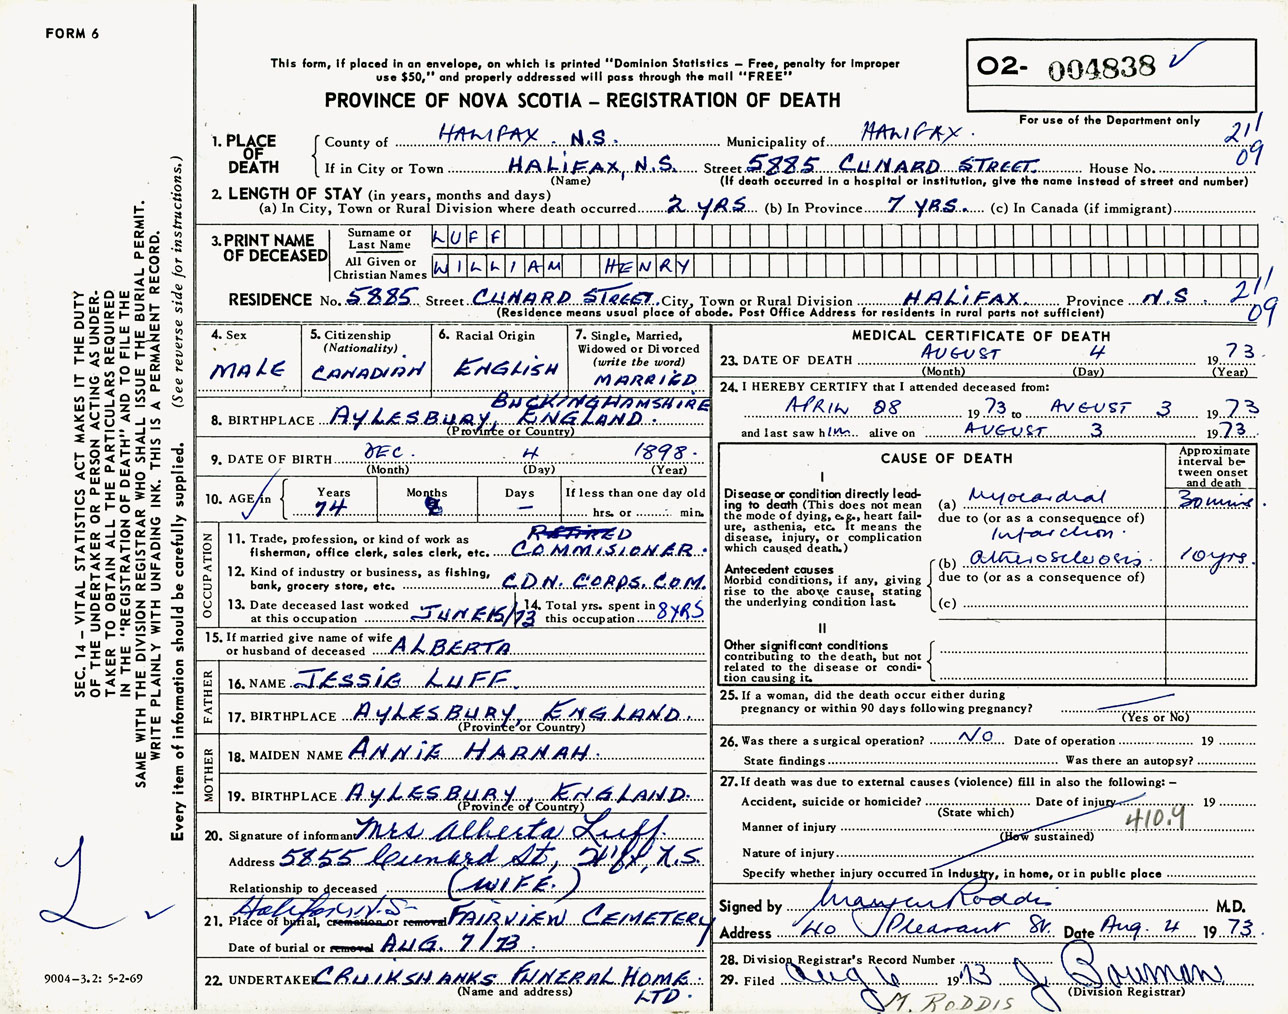 FORM 6
This form, if placed in an envelope, on which is printed "Dominion Statistics – Free, penalty for improper
use $50," and properly addressed will pass through the mail "FREE"
PROVINCE OF NOVA SCOTIA – REGISTRATION OF DEATH
O2- 004838 ✓
For use of the Department only
211
09
1. PLACE OF DEATH
County of HALIFAX N.S. Municipality of HALIFAX.
If in City or Town HALIFAX, N.S. Street 5885 CUNARD STREET. House No.
(Name) (If death occurred in a hospital or institution, give the name instead of street and number)
2. LENGTH OF STAY (in years, months and days)
(a) In City, Town or Rural Division where death occurred 2 YRS (b) In Province 7 YRS. (c) In Canada (if immigrant)
3. PRINT NAME OF DECEASED
Surname or Last Name LUFF
All Given or Christian Names WILLIAM HENRY
RESIDENCE No. 5885 Street CUNARD STREET. City, Town or Rural Division HALIFAX. Province N.S.
(Residence means usual place of abode. Post Office Address for residents in rural parts not sufficient)
211
09
4. Sex
MALE
5. Citizenship
(Nationality)
CANADIAN
6. Racial Origin
ENGLISH
7. Single, Married,
Widowed or Divorced
(write the word)
MARRIED
BUCKINGHAMSHIRE
8. BIRTHPLACE AYLESBURY, ENGLAND.
(Province or Country)
9. DATE OF BIRTH DEC. 4 1898.
(Month) (Day) (Year)
10. AGE in
Years
74
Months
8
Days
–
If less than one day old
hrs. or min.
OCCUPATION
RETIRED
11. Trade, profession, or kind of work as
fisherman, office clerk, sales clerk, etc. COMMISIONER.
12. Kind of industry or business, as fishing,
bank, grocery store, etc. CDN. CORPS. COM.
13. Date deceased last worked
at this occupation JUNE 15/73
14. Total yrs. spent in
this occupation 8 YRS
15. If married give name of wife
or husband of deceased ALBERTA
FATHER
16. NAME JESSIE LUFF.
17. BIRTHPLACE AYLESBURY, ENGLAND.
(Province or Country)
MOTHER
18. MAIDEN NAME ANNIE HARNAH.
19. BIRTHPLACE AYLESBURY, ENGLAND.
(Province or Country)
20. Signature of informant Mrs Alberta Luff.
Address 5855 Cunard St, Hlfx, N.S.
Relationship to deceased (WIFE.)
Halifax N.S
21. Place of burial, cremation or removal FAIRVIEW CEMETERY
Date of burial or removal AUG. 7/73.
22. UNDERTAKER CRUIKSHANKS FUNERAL HOME.
(Name and address) LTD.
MEDICAL CERTIFICATE OF DEATH
23. DATE OF DEATH AUGUST 4 1973.
(Month) (Day) (Year)
24. I HEREBY CERTIFY that I attended deceased from:
APRIL 08 1973 to AUGUST 3 1973
and last saw him alive on AUGUST 3 1973.
CAUSE OF DEATH
Approximate
interval be-
tween onset
and death
I
Disease or condition directly lead-
ing to death (This does not mean
the mode of dying, e.g., heart fail-
ure, asthenia, etc. It means the
disease, injury, or complication
which caused death.)
(a) Myocardial 30 mins.
due to (or as a consequence of)
Infarction.
Antecedent causes
Morbid conditions, if any, giving
rise to the above cause, stating
the underlying condition last.
(b) Atherosclerosis 10 yrs.
due to (or as a consequence of)
(c)
II
Other significant conditions
contributing to the death, but not
related to the disease or condi-
tion causing it.
25. If a woman, did the death occur either during
pregnancy or within 90 days following pregnancy?
(Yes or No)
26. Was there a surgical operation? NO Date of operation 19
State findings Was there an autopsy?
27. If death was due to external causes (violence) fill in also the following: –
Accident, suicide or homicide? Date of injury 19
(State which)
Manner of injury 410.9
(How sustained)
Nature of injury
Specify whether injury occurred in industry, in home, or in public place
Signed by Roddis M.D.
Address 40 Pleasant St. Date Aug. 4 1973.
28. Division Registrar's Record Number
29. Filed Aug 6 1973 J. Bowman
(Division Registrar)
M. RODDIS
SEC. 14 – VITAL STATISTICS ACT MAKES IT THE DUTY
OF THE UNDERTAKER OR PERSON ACTING AS UNDER-
TAKER TO OBTAIN ALL THE PARTICULARS REQUIRED
IN THE "REGISTRATION OF DEATH" AND TO FILE THE
SAME WITH THE DIVISION REGISTRAR WHO SHALL ISSUE THE BURIAL PERMIT.
WRITE PLAINLY WITH UNFADING INK. THIS IS A PERMANENT RECORD.
Every item of information should be carefully supplied. (See reverse side for instructions.)
L ✓
9004-3.2: 5-2-69